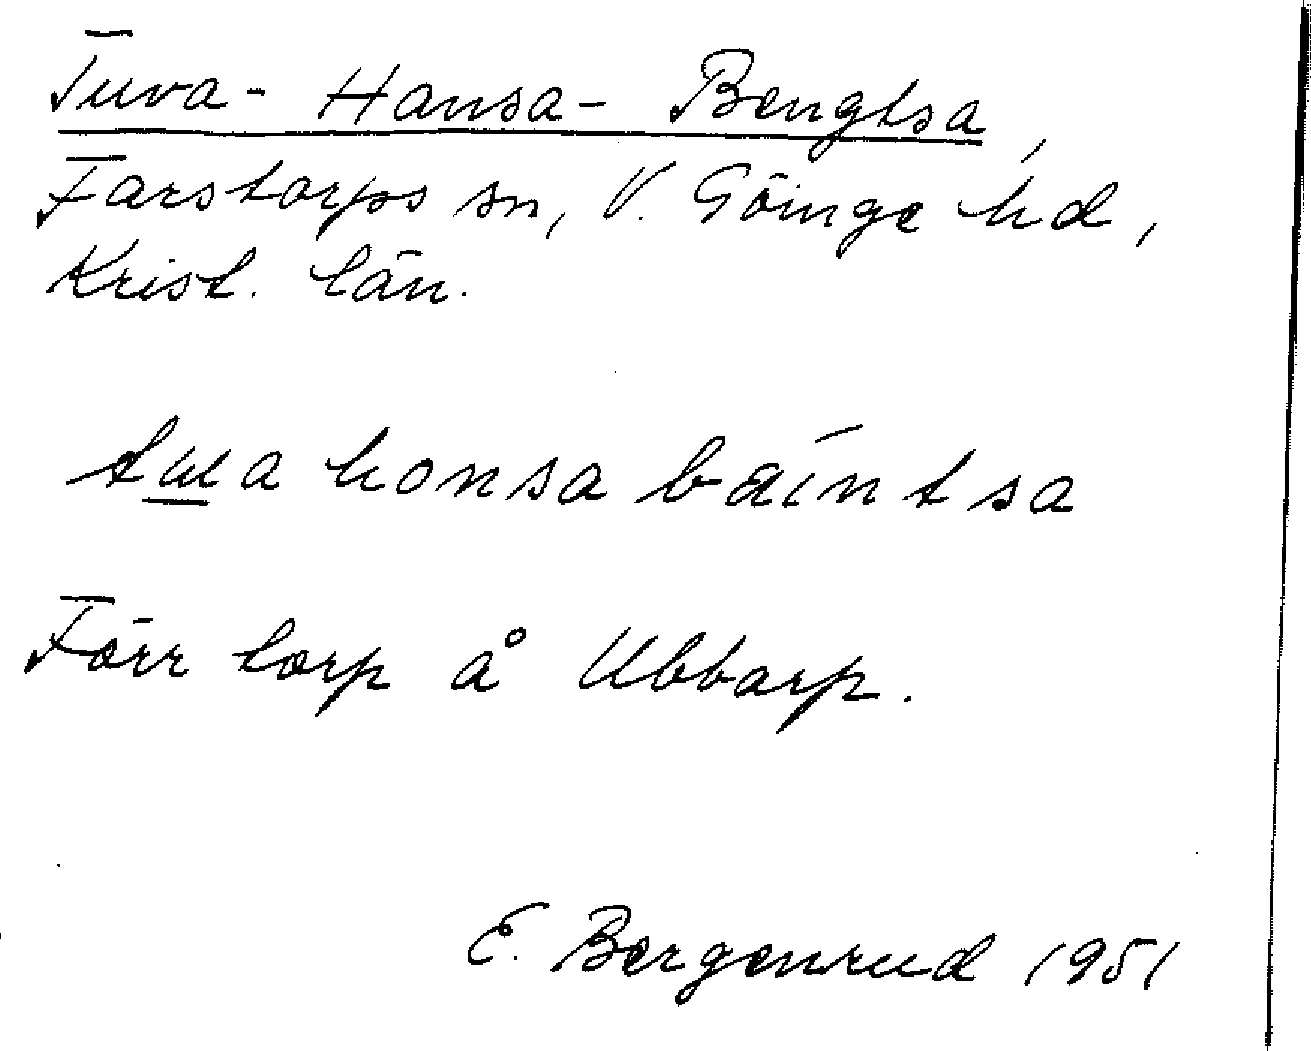 Tuva-Hansa-Bengtsa,
Farstorps sn, V. Göinge hd,
Krist. län.
honsa baíntsa
Förr torp å Ubbarp.
E. Bergenrud 1951